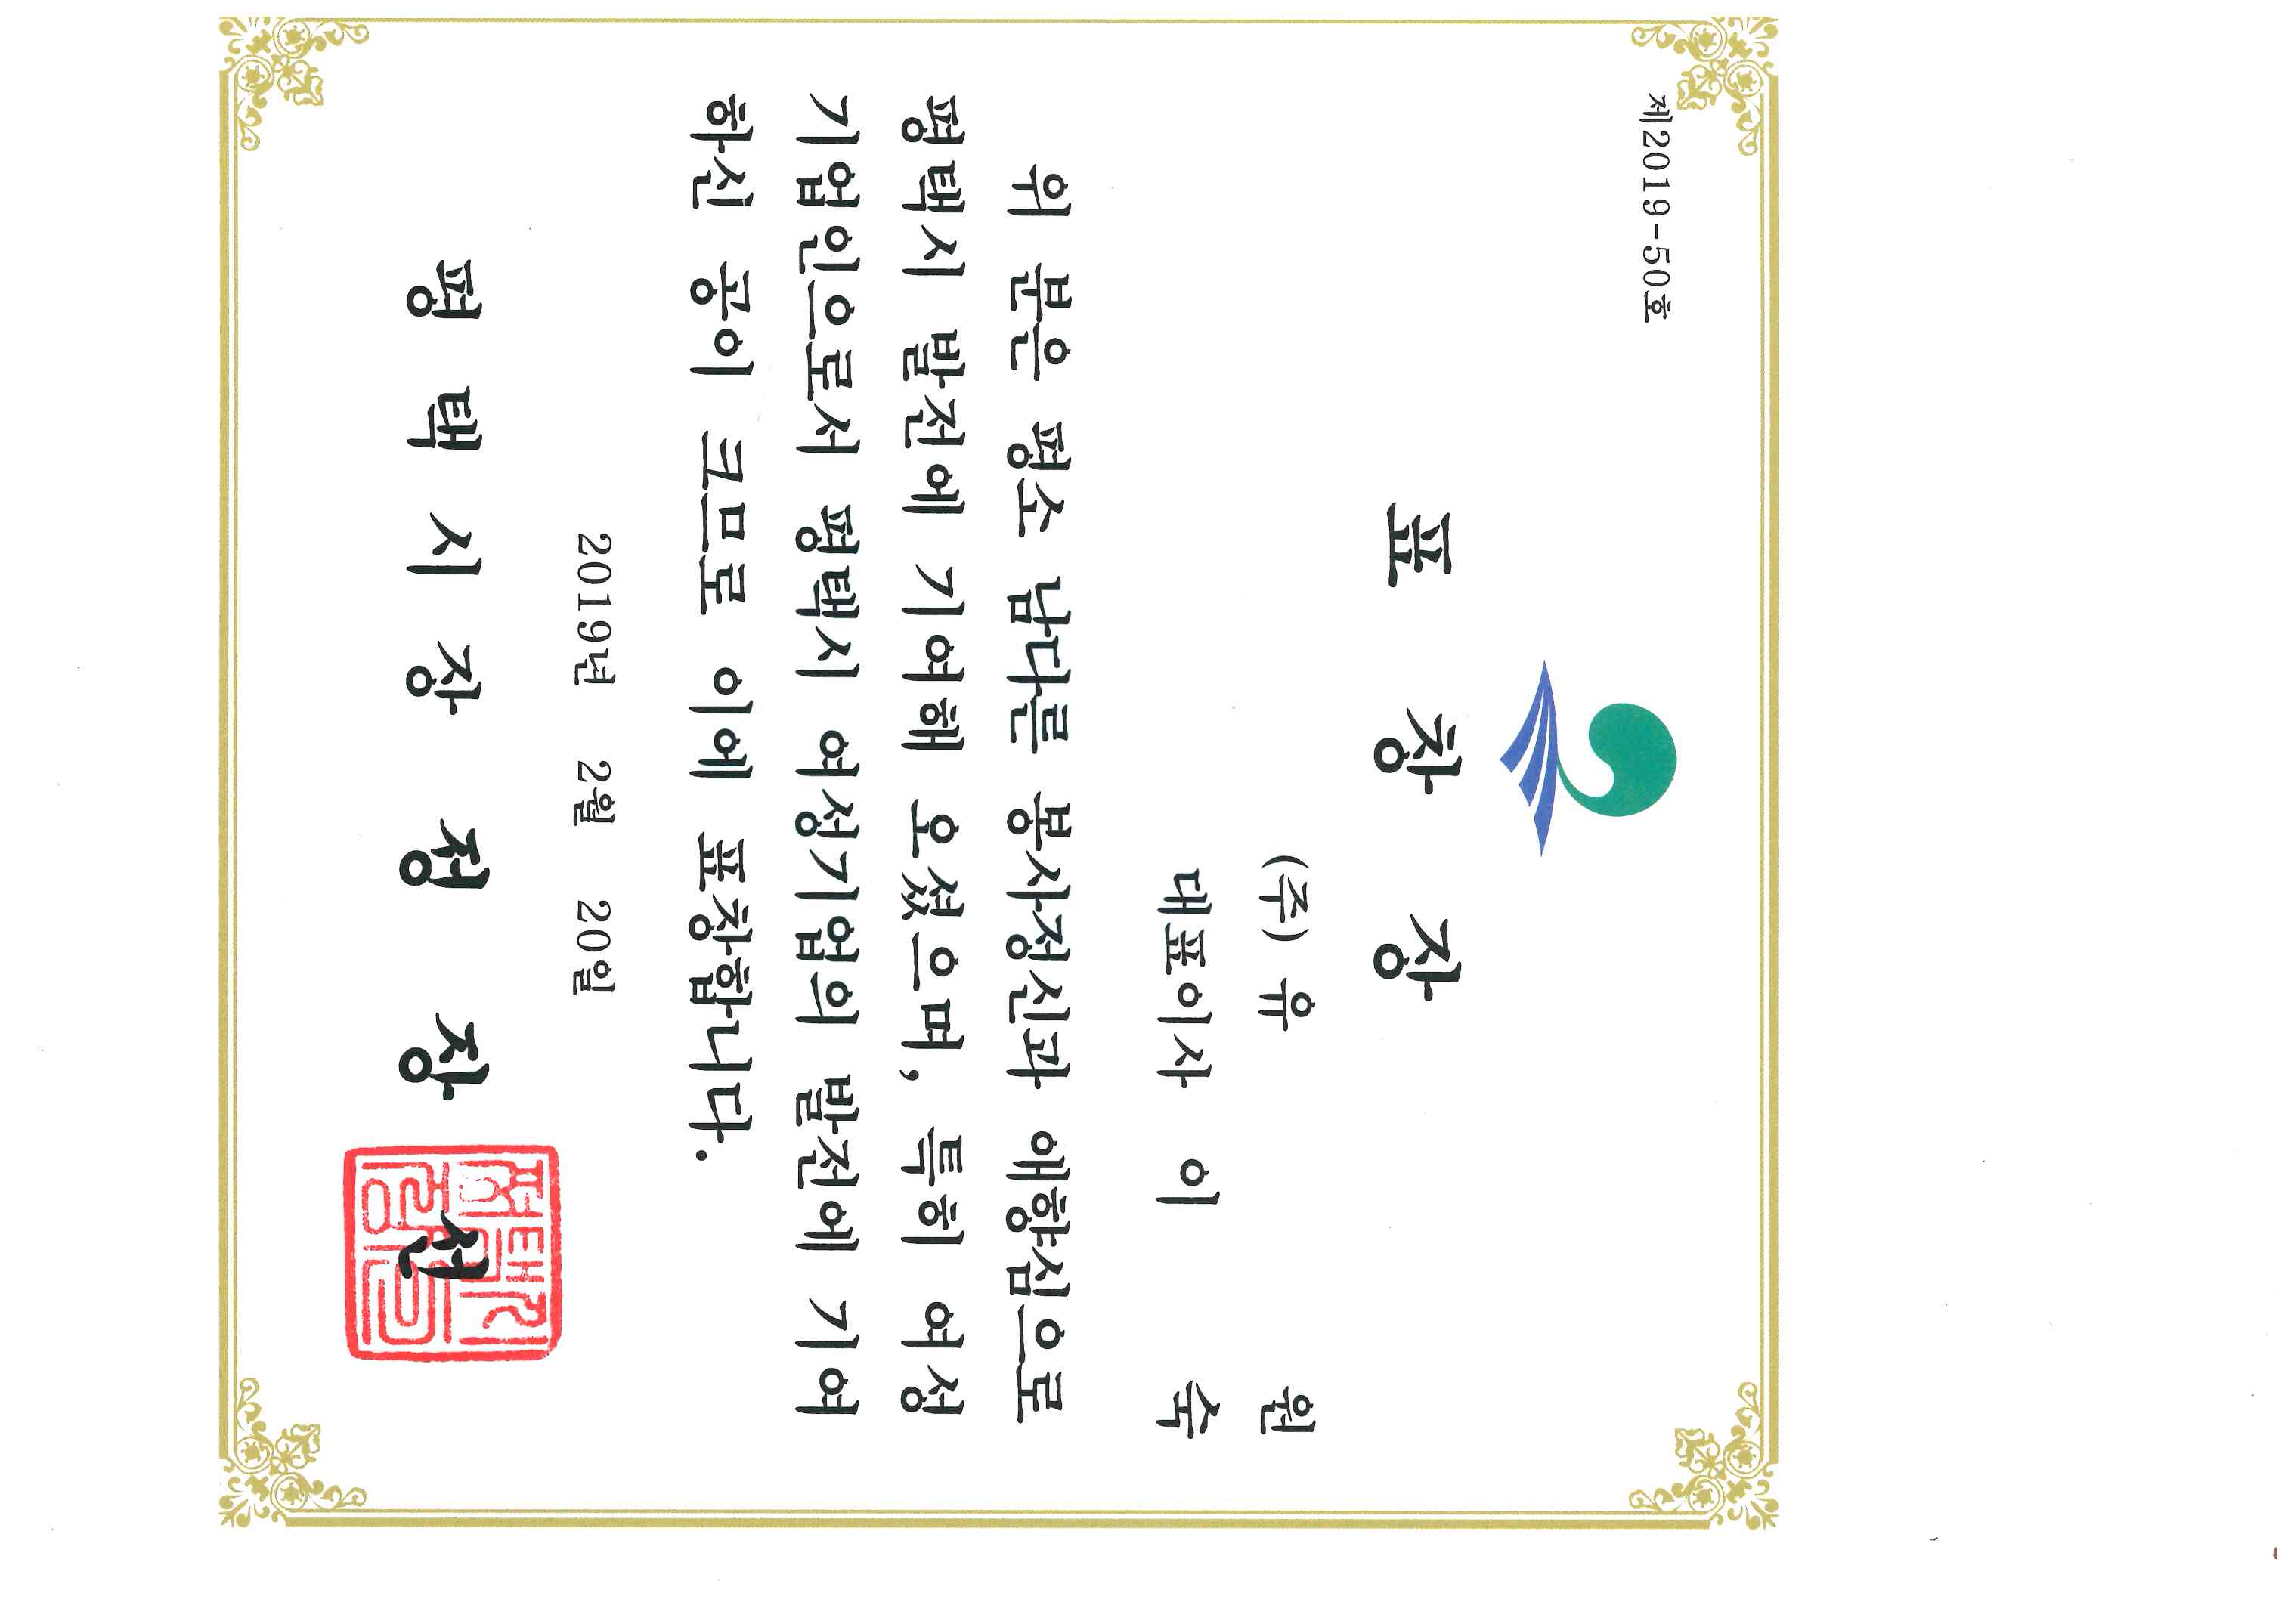 제2019-50호
표 창 장
(주) 유 원
대표이사 이 숙
위 분은 평소 남다른 봉사정신과 애향심으로
평택시 발전에 기여해 오셨으며, 특히 여성
기업인으로서 평택시 여성기업의 발전에 기여
하신 공이 크므로 이에 표창합니다.
2019년 2월 20일
평 택 시 장 정 장 선